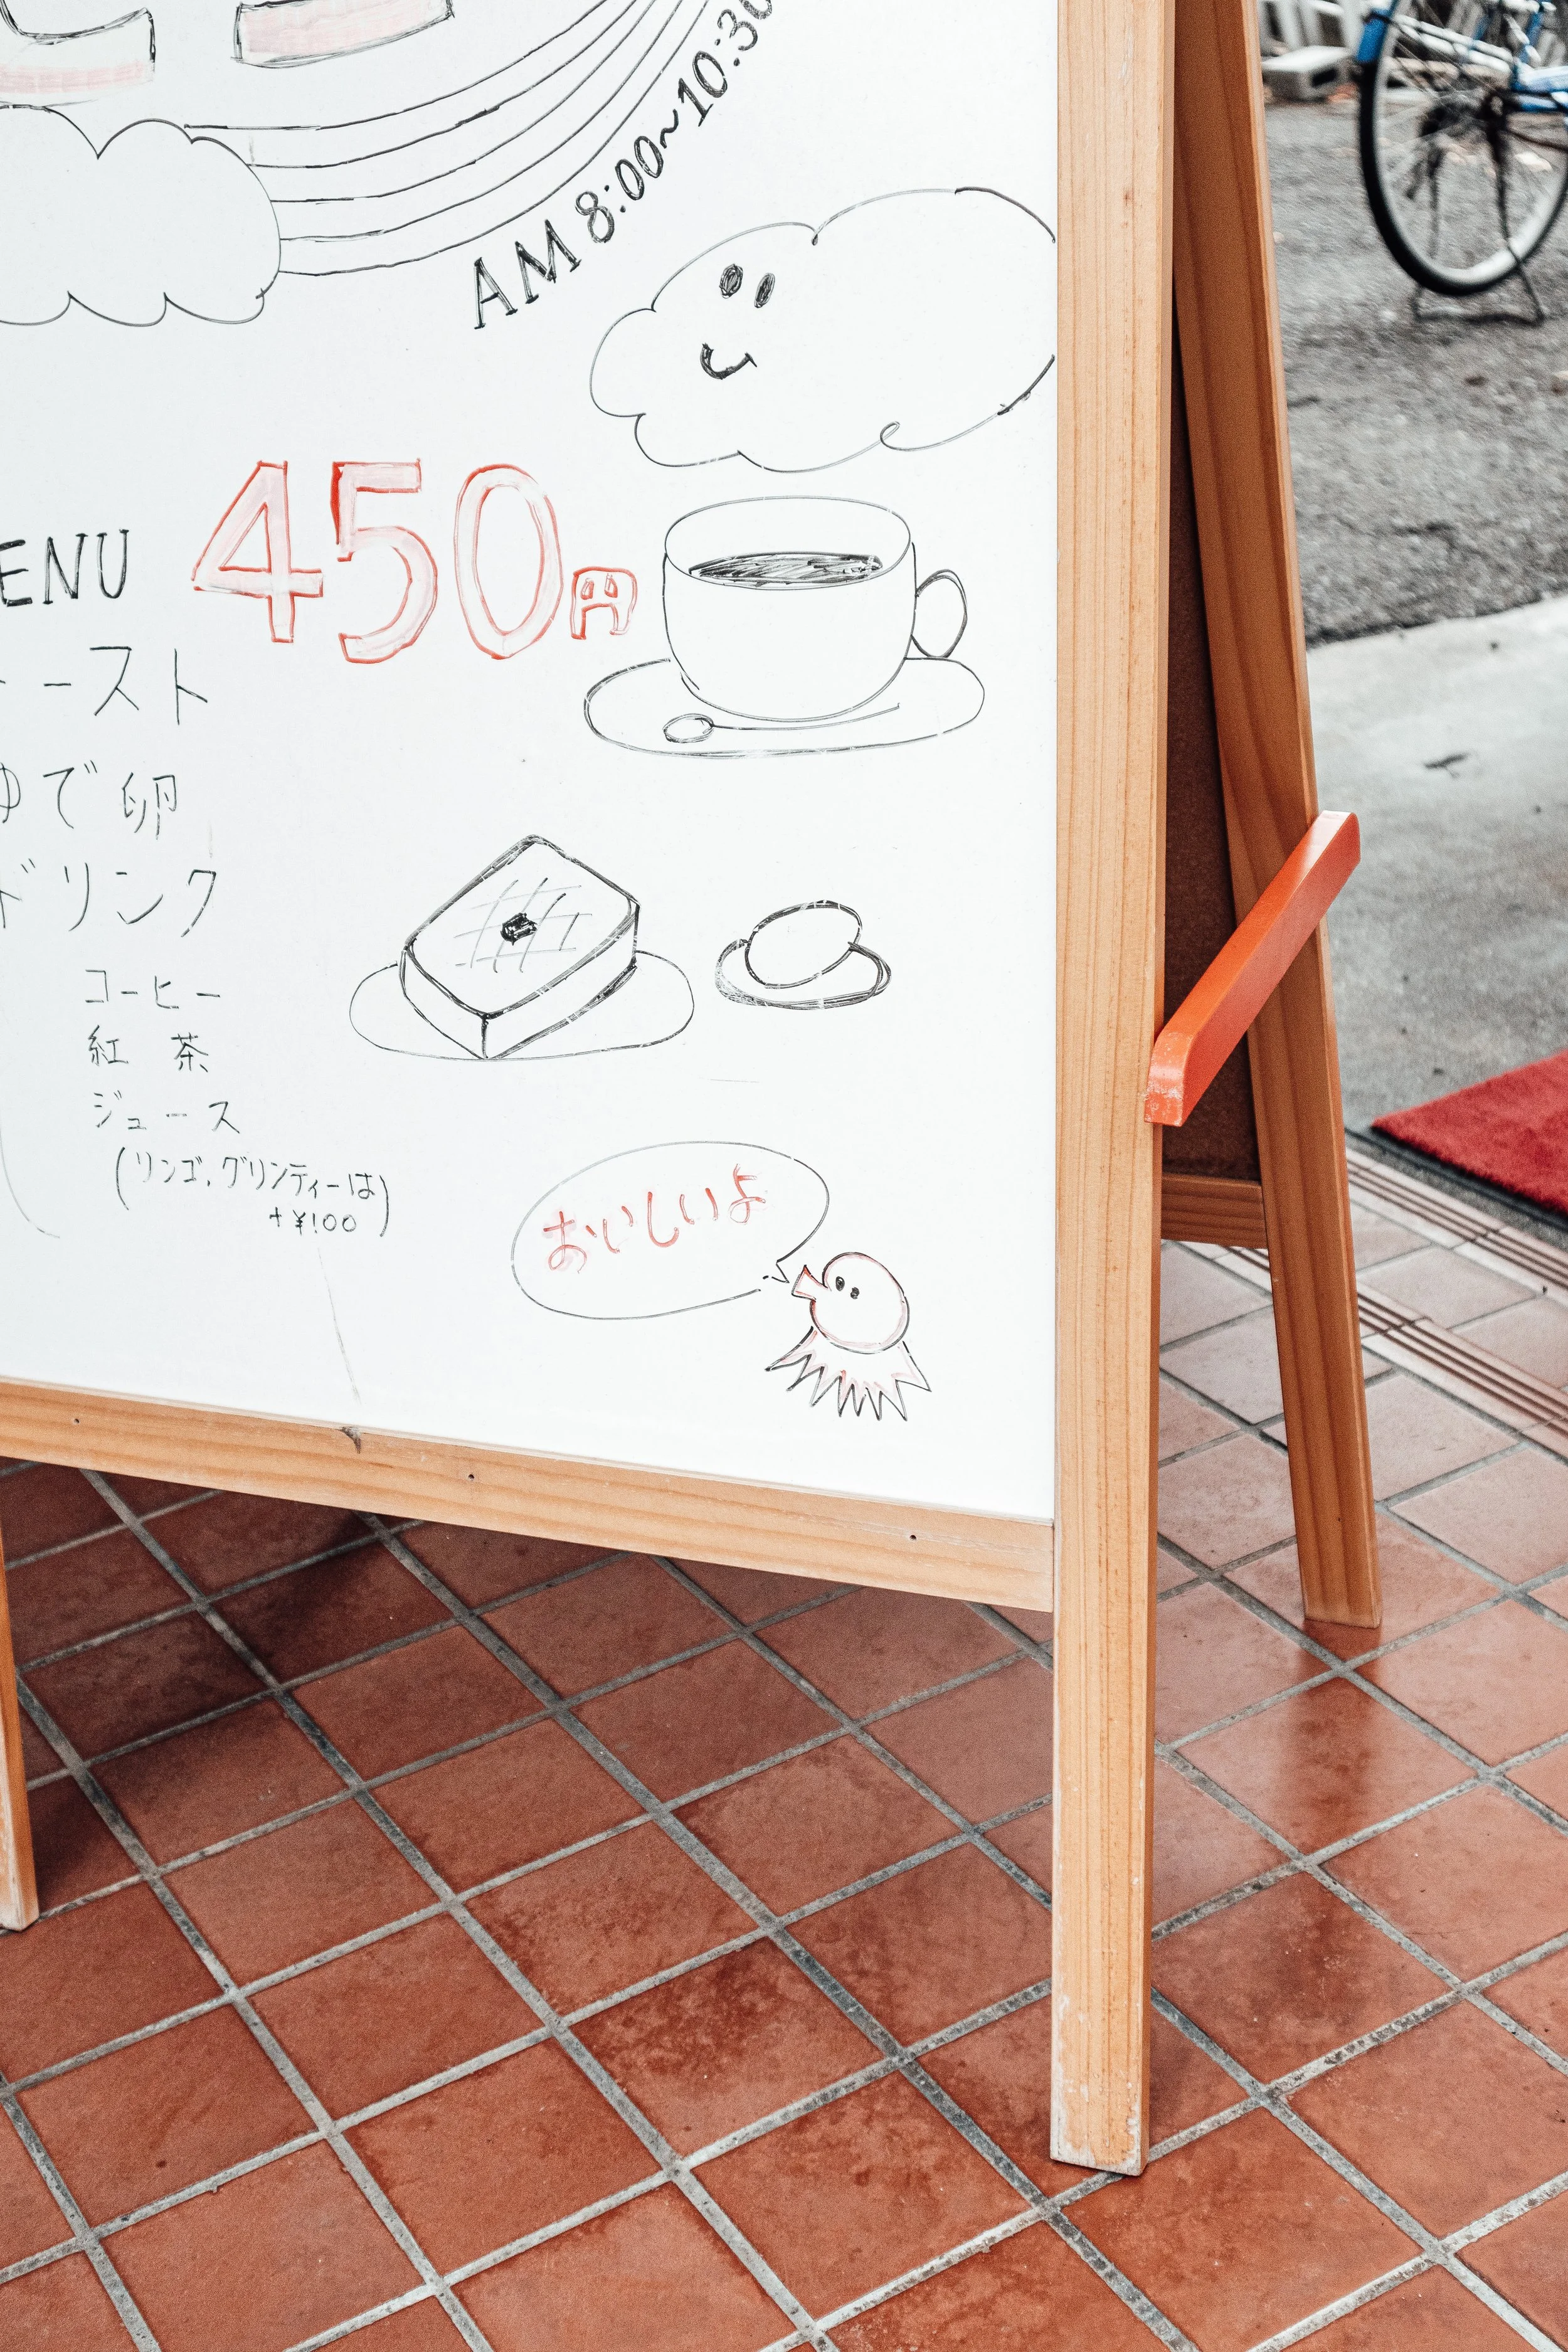 AM 8:00~10:30
ENU 450円
ースト
ゆで卵
ドリンク
コーヒー
紅 茶
ジュース
(リンゴ、グリンティーは
+¥100)
おいしいよ